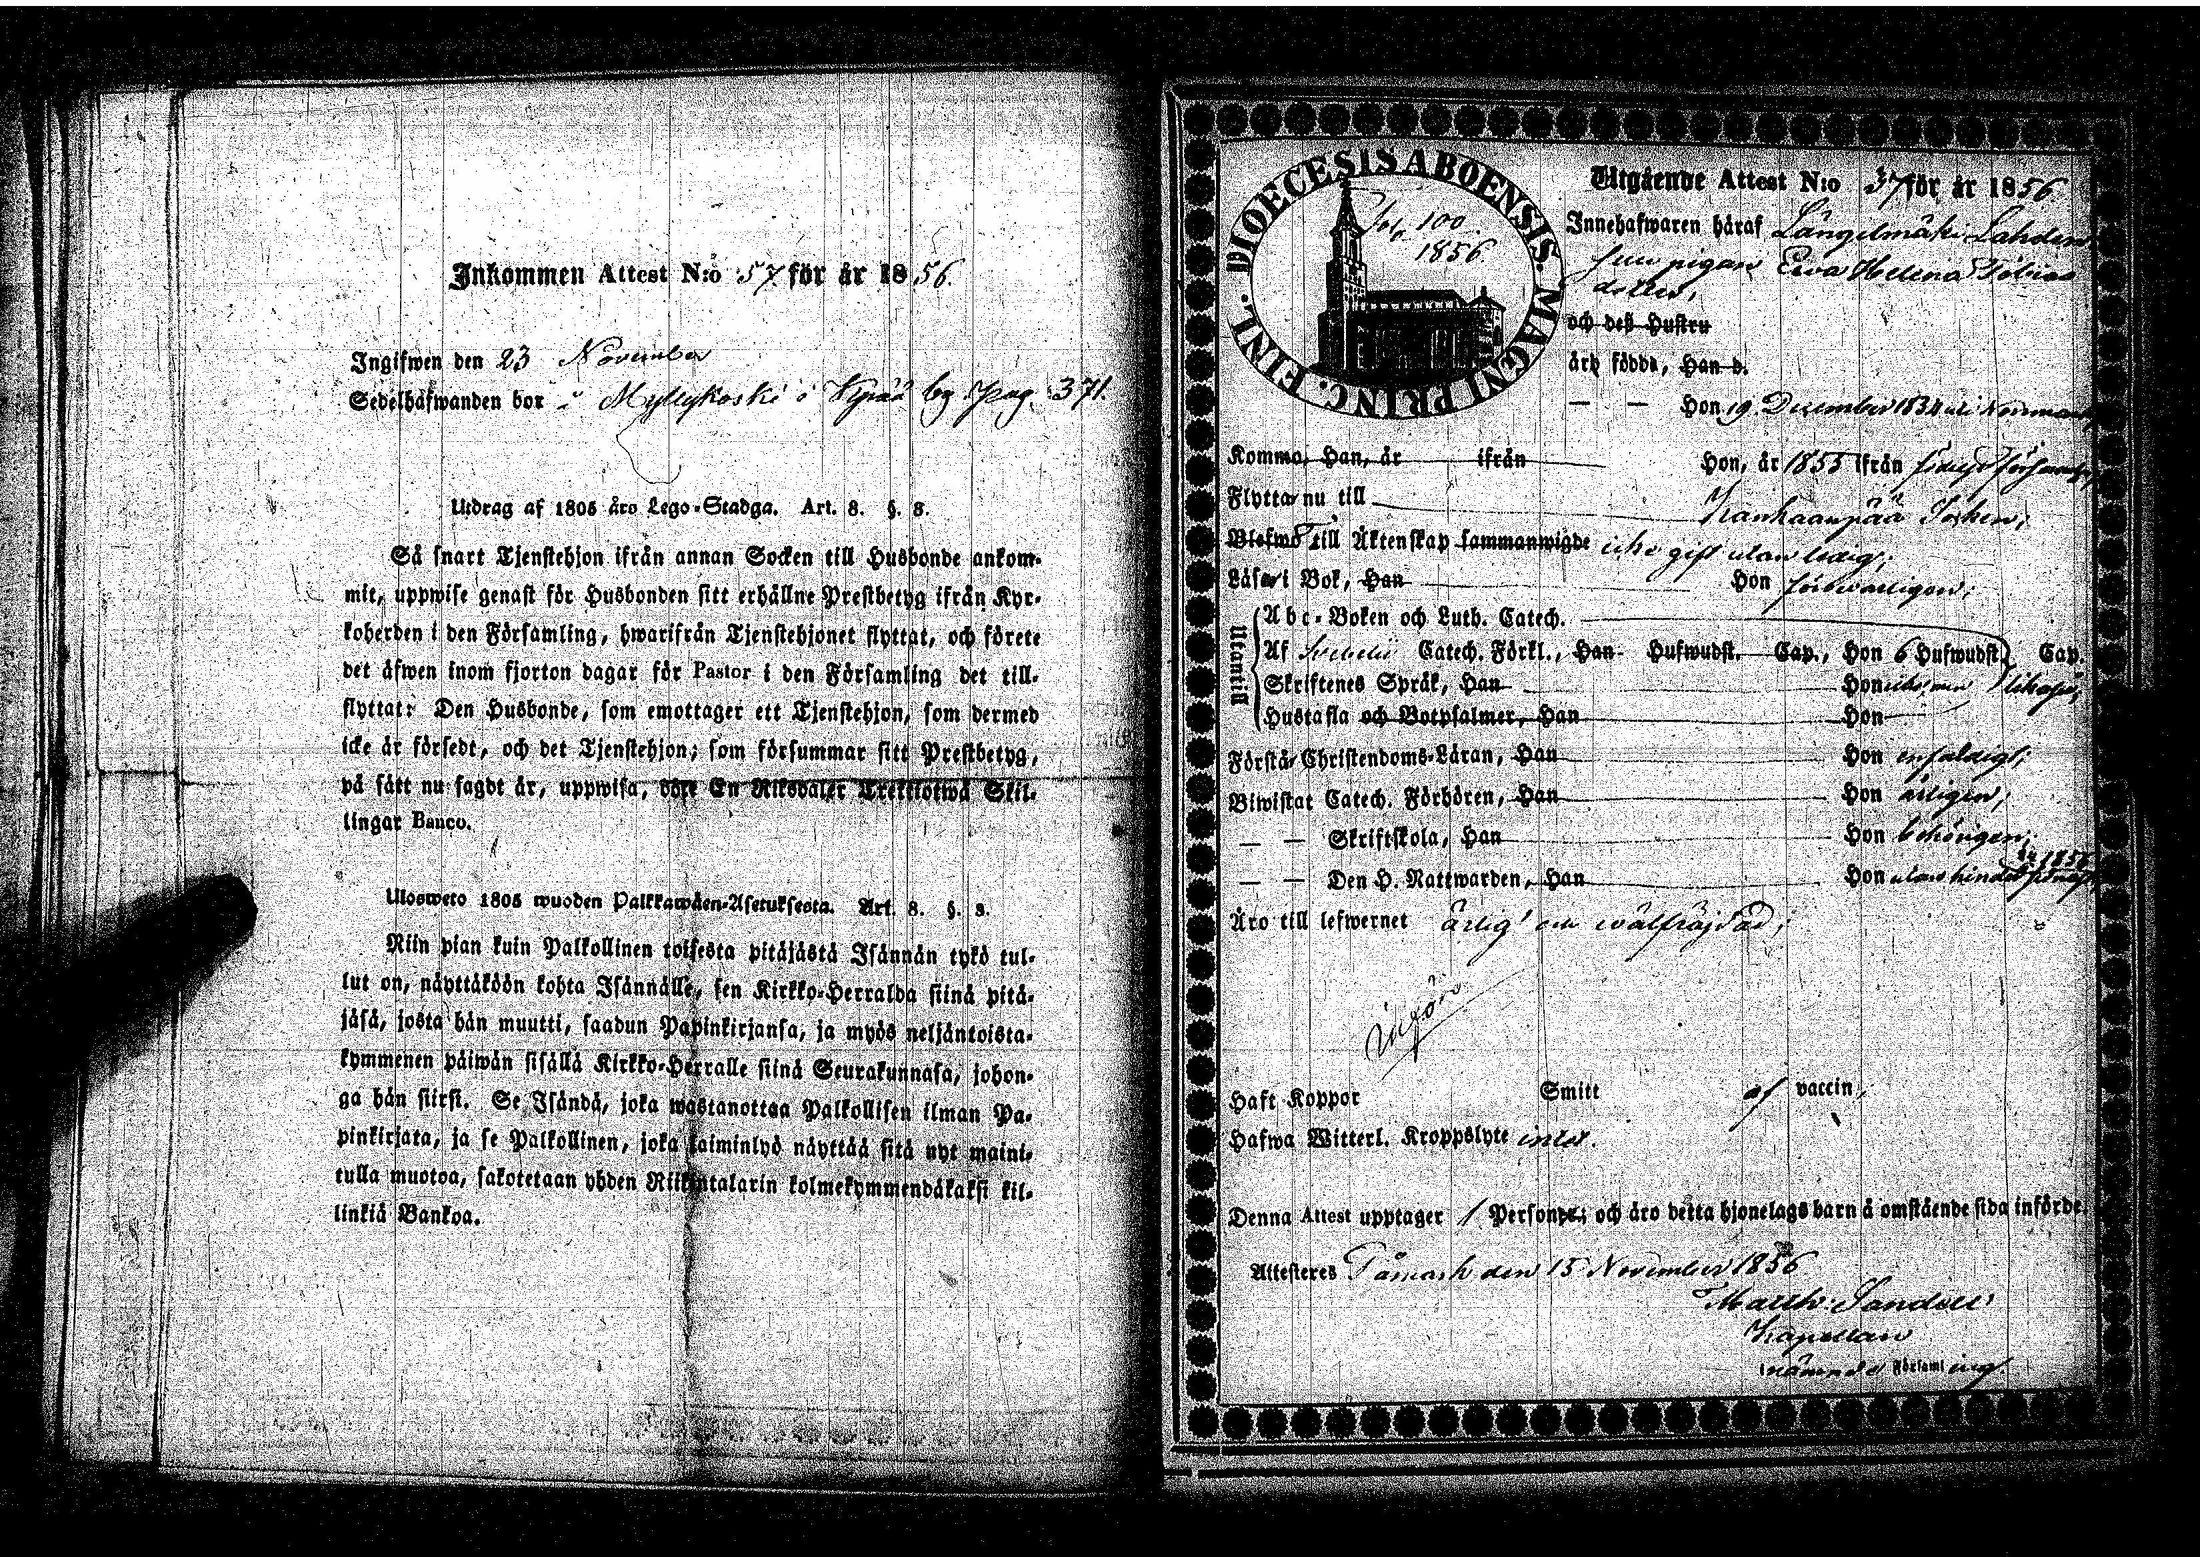 Inkommen Attest N:o 57 för år 1856.
Ingifwen den 23 November
Sedelhafwanden bor i Myllykoski i Kyrää by Pag. 371.
Utdrag af 1805 års Lego-Stadga. Art. 8. §. 8.
Så snart Tjenstehjon ifrån annan Socken till Husbonde ankom-
mit, uppwise genast för Husbonden sitt erhållne Prestbetyg ifrån Kyr-
koherden i den Församling, hwarifrån Tjenstehjonet flyttat, och förete
det äfwen inom fjorton dagar för Pastor i den Församling det till-
flyttat: Den Husbonde, som emottager ett Tjenstehjon, som dermed
icke är försedt, och det Tjenstehjon; som försummar sitt Prestbetyg,
på sätt nu sagdt är, uppwisa, böte En Riksdaler Trettiotwå Skil-
lingar Banco.
Ulosweto 1805 wuoden Palkkawäen-Asetuksesta. Art. 8. §. 8.
Niin pian kuin Palkollinen toisesta pitäjästä Isännän tykö tul-
lut on, näyttäköön kohta Isännälle, sen Kirkko-Herralda siinä pitä-
jäsä, josta hän muutti, saadun Papinkirjansa, ja myös neljäntoista-
kymmenen päiwän sisällä Kirkko-Herralle siinä Seurakunnasa, johon-
ga hän siirsi. Se Isändä, joka wastanottaa Palkollisen ilman Pa-
pinkirjata, ja se Palkollinen, joka laiminlyö näyttää sitä nyt maini-
tulla muotoa, sakotetaan yhden Riikintalarin kolmekymmendäkaksi kil-
linkiä Bankoa.
DIOECESIS ABOENSIS. MAGNI PRINC. FINL.
100.
1856
Utgående Attest N:o 37 för år 1856
Innehafwaren häraf Längelmäki Lahden
pigan Ewa Helena Tobias
dotter,
och deß Hustru
äro födde, Han d.
— — Hon 19 December 1834
Komma, Han, år ifrån Hon, år 1855 ifrån
Flytta nu till Kankaanpää Socken;
Blefwo Till Äktenskap sammanwigde icke gift utan ledig;
Läsa i Bok, Han Hon försvarligen;
Utantill
Abc-Boken och Luth. Catech.
Af Svebelii Catech. Förkl., Han Hufwudst. Cap., Hon 6 Hufwudst. Cap.
Skriftenes Språk, Han Hon
Hustafla och Botpsalmer, Han Hon
Förstå Christendoms-Läran, Han Hon enfaldigt;
Biwistat Catech. Förhören, Han Hon årligen;
— — Skriftskola, Han Hon behörigen;
— — Den H. Nattwarden, Han Hon utan hinder
Äro till lefwernet ärlig och wälfräjdad;
Haft Koppor Smitt af vaccin,
Hafwa Witterl. Kroppslyte intet.
Denna Attest upptager 1 Person och äro detta hjonelags barn å omstående sida införde.
Attesteres Tåmark den 15 November 1856
Matth: Sandell
Kapellan
Församling